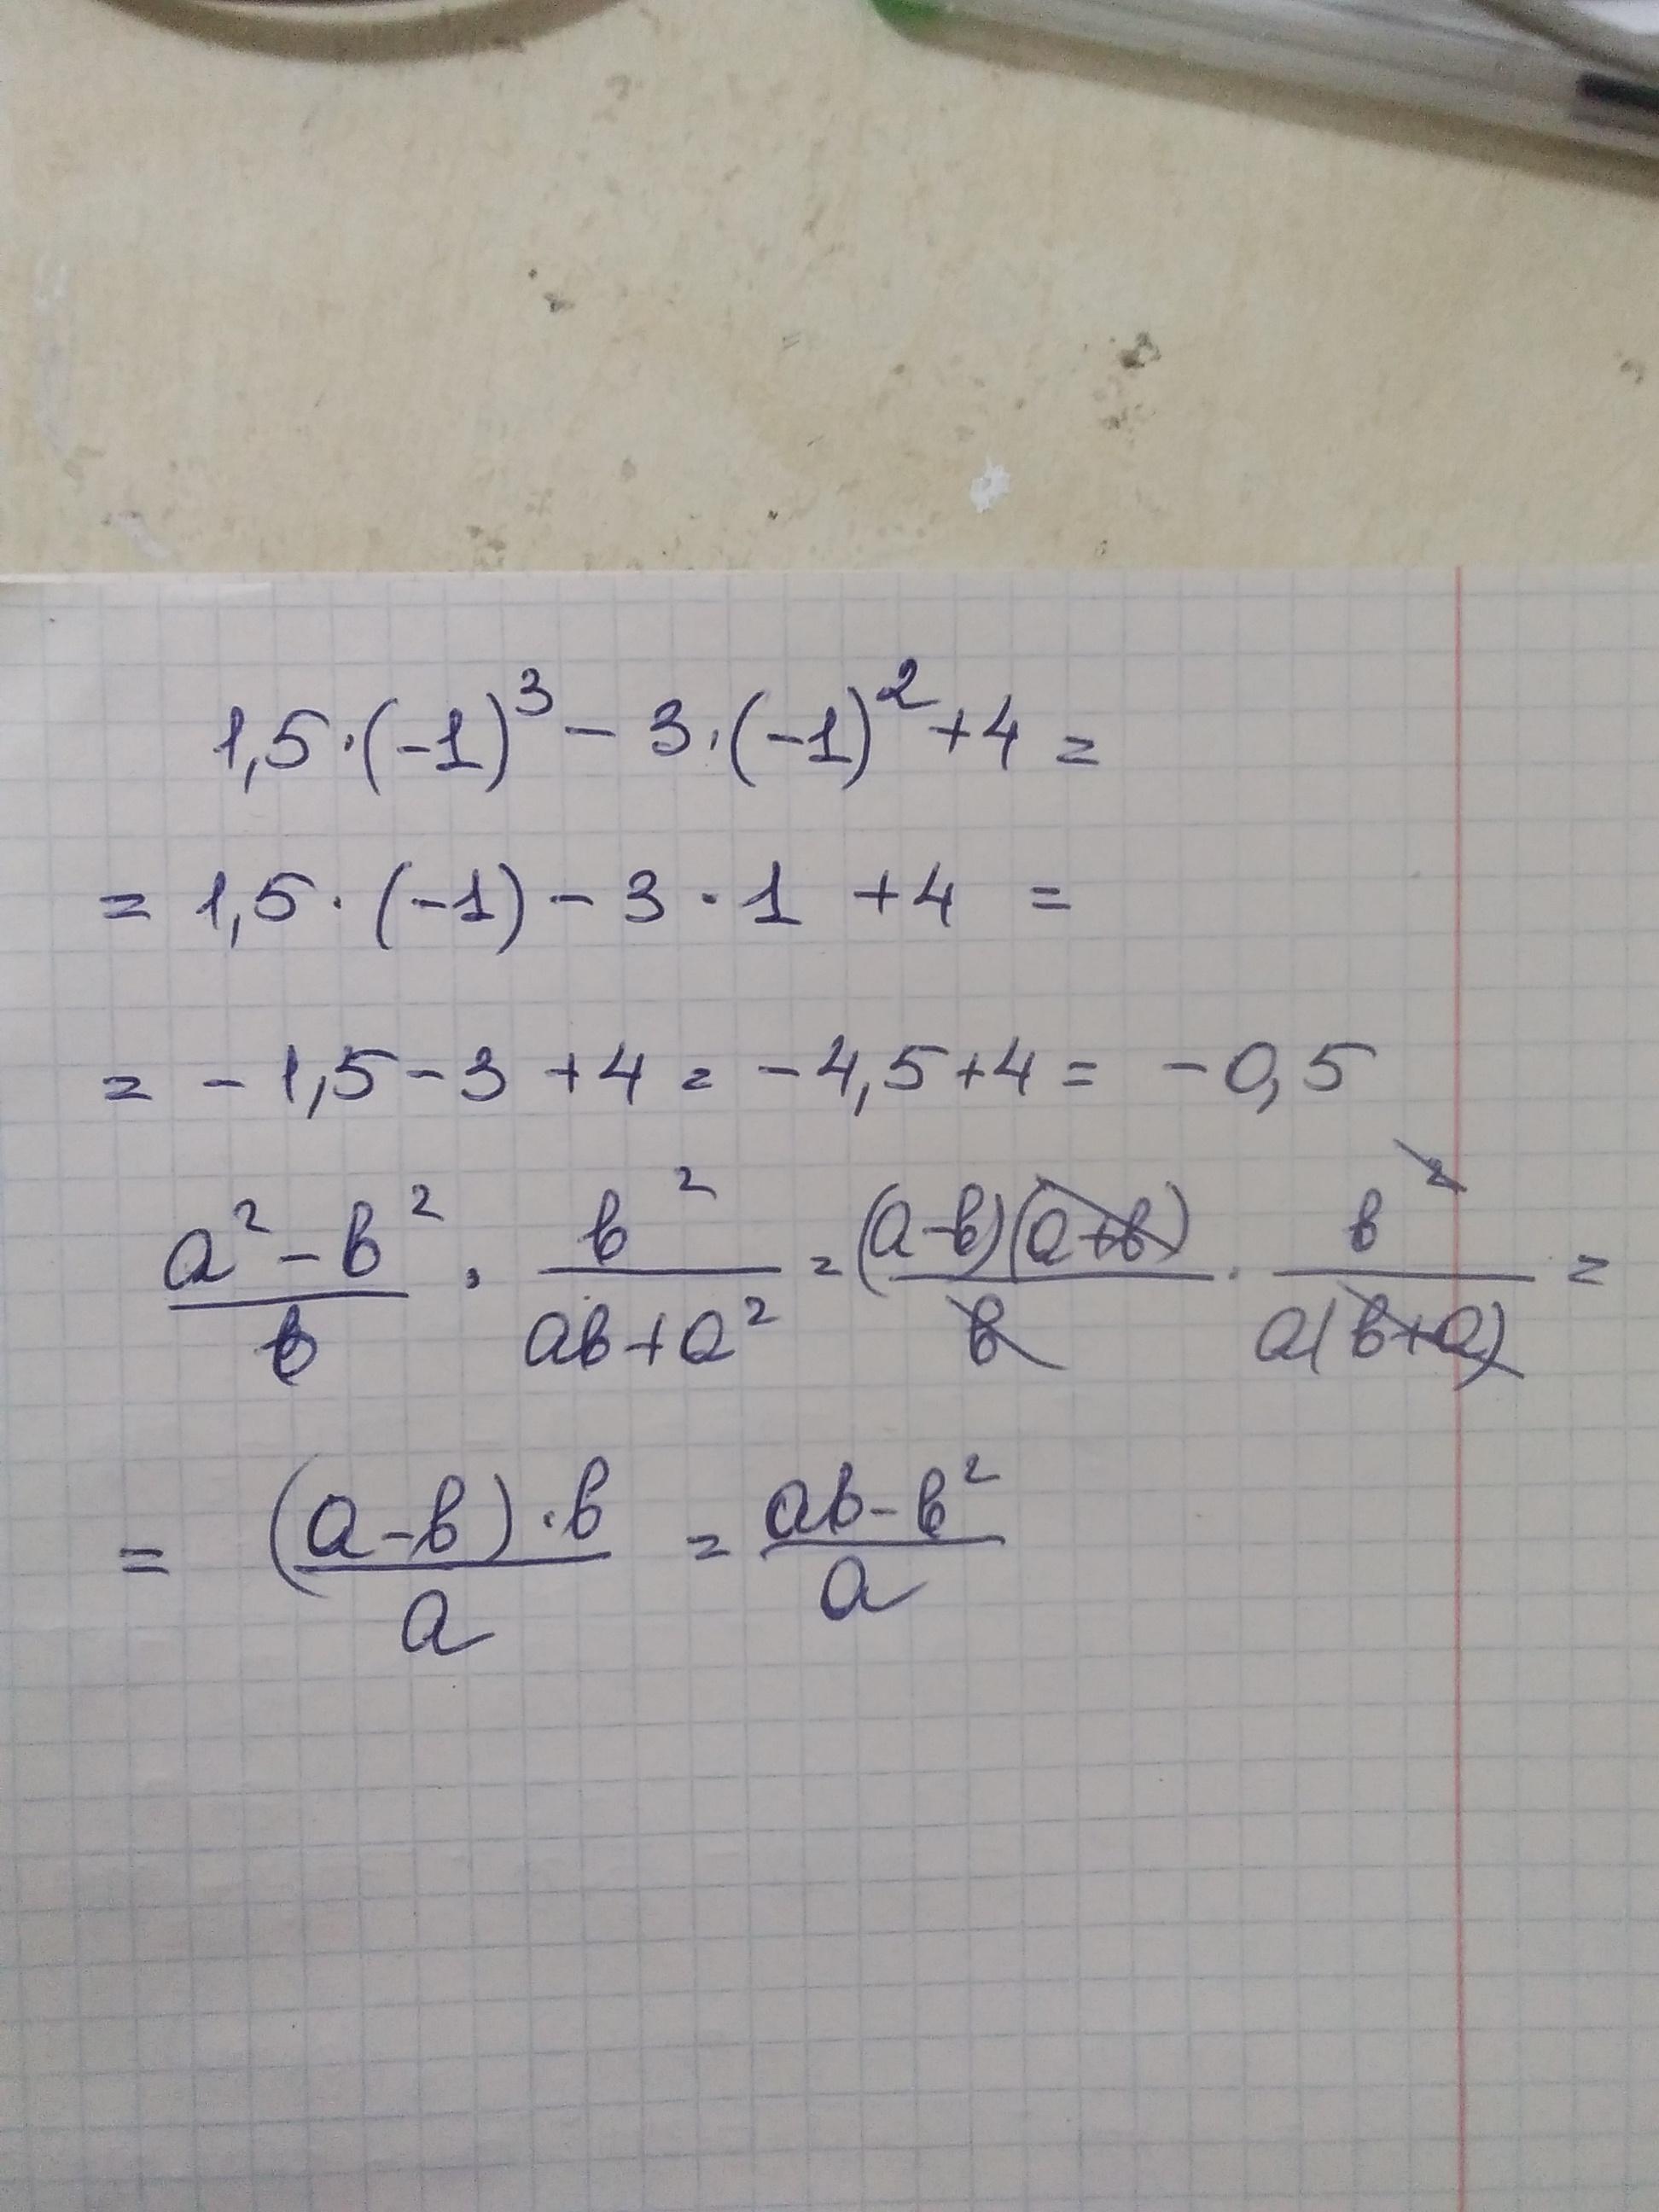 1,5·(-1)³ - 3·(-1)² + 4 =
= 1,5·(-1) - 3·1 + 4 =
= -1,5 - 3 + 4 = -4,5 + 4 = -0,5
(a² - b²)/b · b²/(ab + a²) = (a - b)(a + b)/b · b²/(a(b + a)) =
= ((a - b)·b)/a = (ab - b²)/a